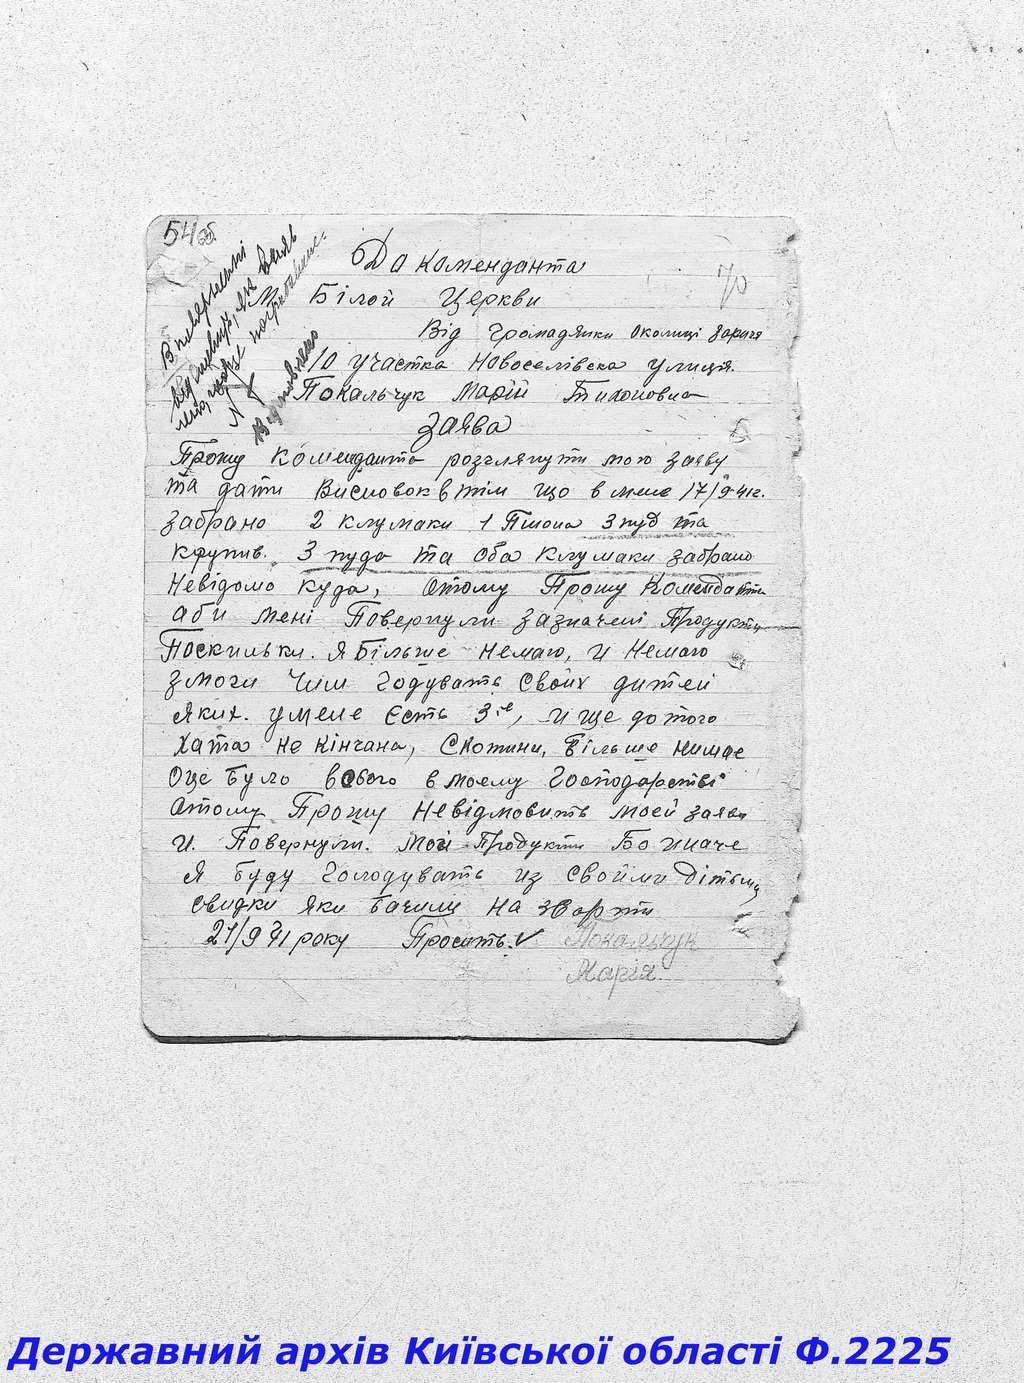 54об.
До коменданта
70
М Білой Церкви
Від громадянки околиці Заріча
10 участка Новоселівска улиція.
Покальчук Марій Тихоновна
Заява
Прошу Коменданта розглянути мою заяву
та дати Висновок в тім що в мене 17/9 41г.
забрано 2 клумаки 1 Пшона 3 пуд та
крупив. 3 пуда та оба клумаки забрано
Невідомо куда, Атому Прошу Коменданта
аби мені Повернули зазначені Продукти
Поскильки. я Більше Немаю, и Немаю
змоги Чим Годувать Своих дитей
яких. умене Єсть 3є, и ще до того
Хата не кінчана, Скотини, Більше нимає
Оце було всього в моєму Господарстві
Атому Прошу Невідмовить моей заяви
И. Повернули. мои Продукти Бо иначе
Я буду Голодувать из Своими Дітьми
свидки яки бачили на звороти
21/9 41 року Просить. Покальчук
Марія.
В повернені
відмовить, як
Відмовлено
Державний архів Київської області Ф.2225